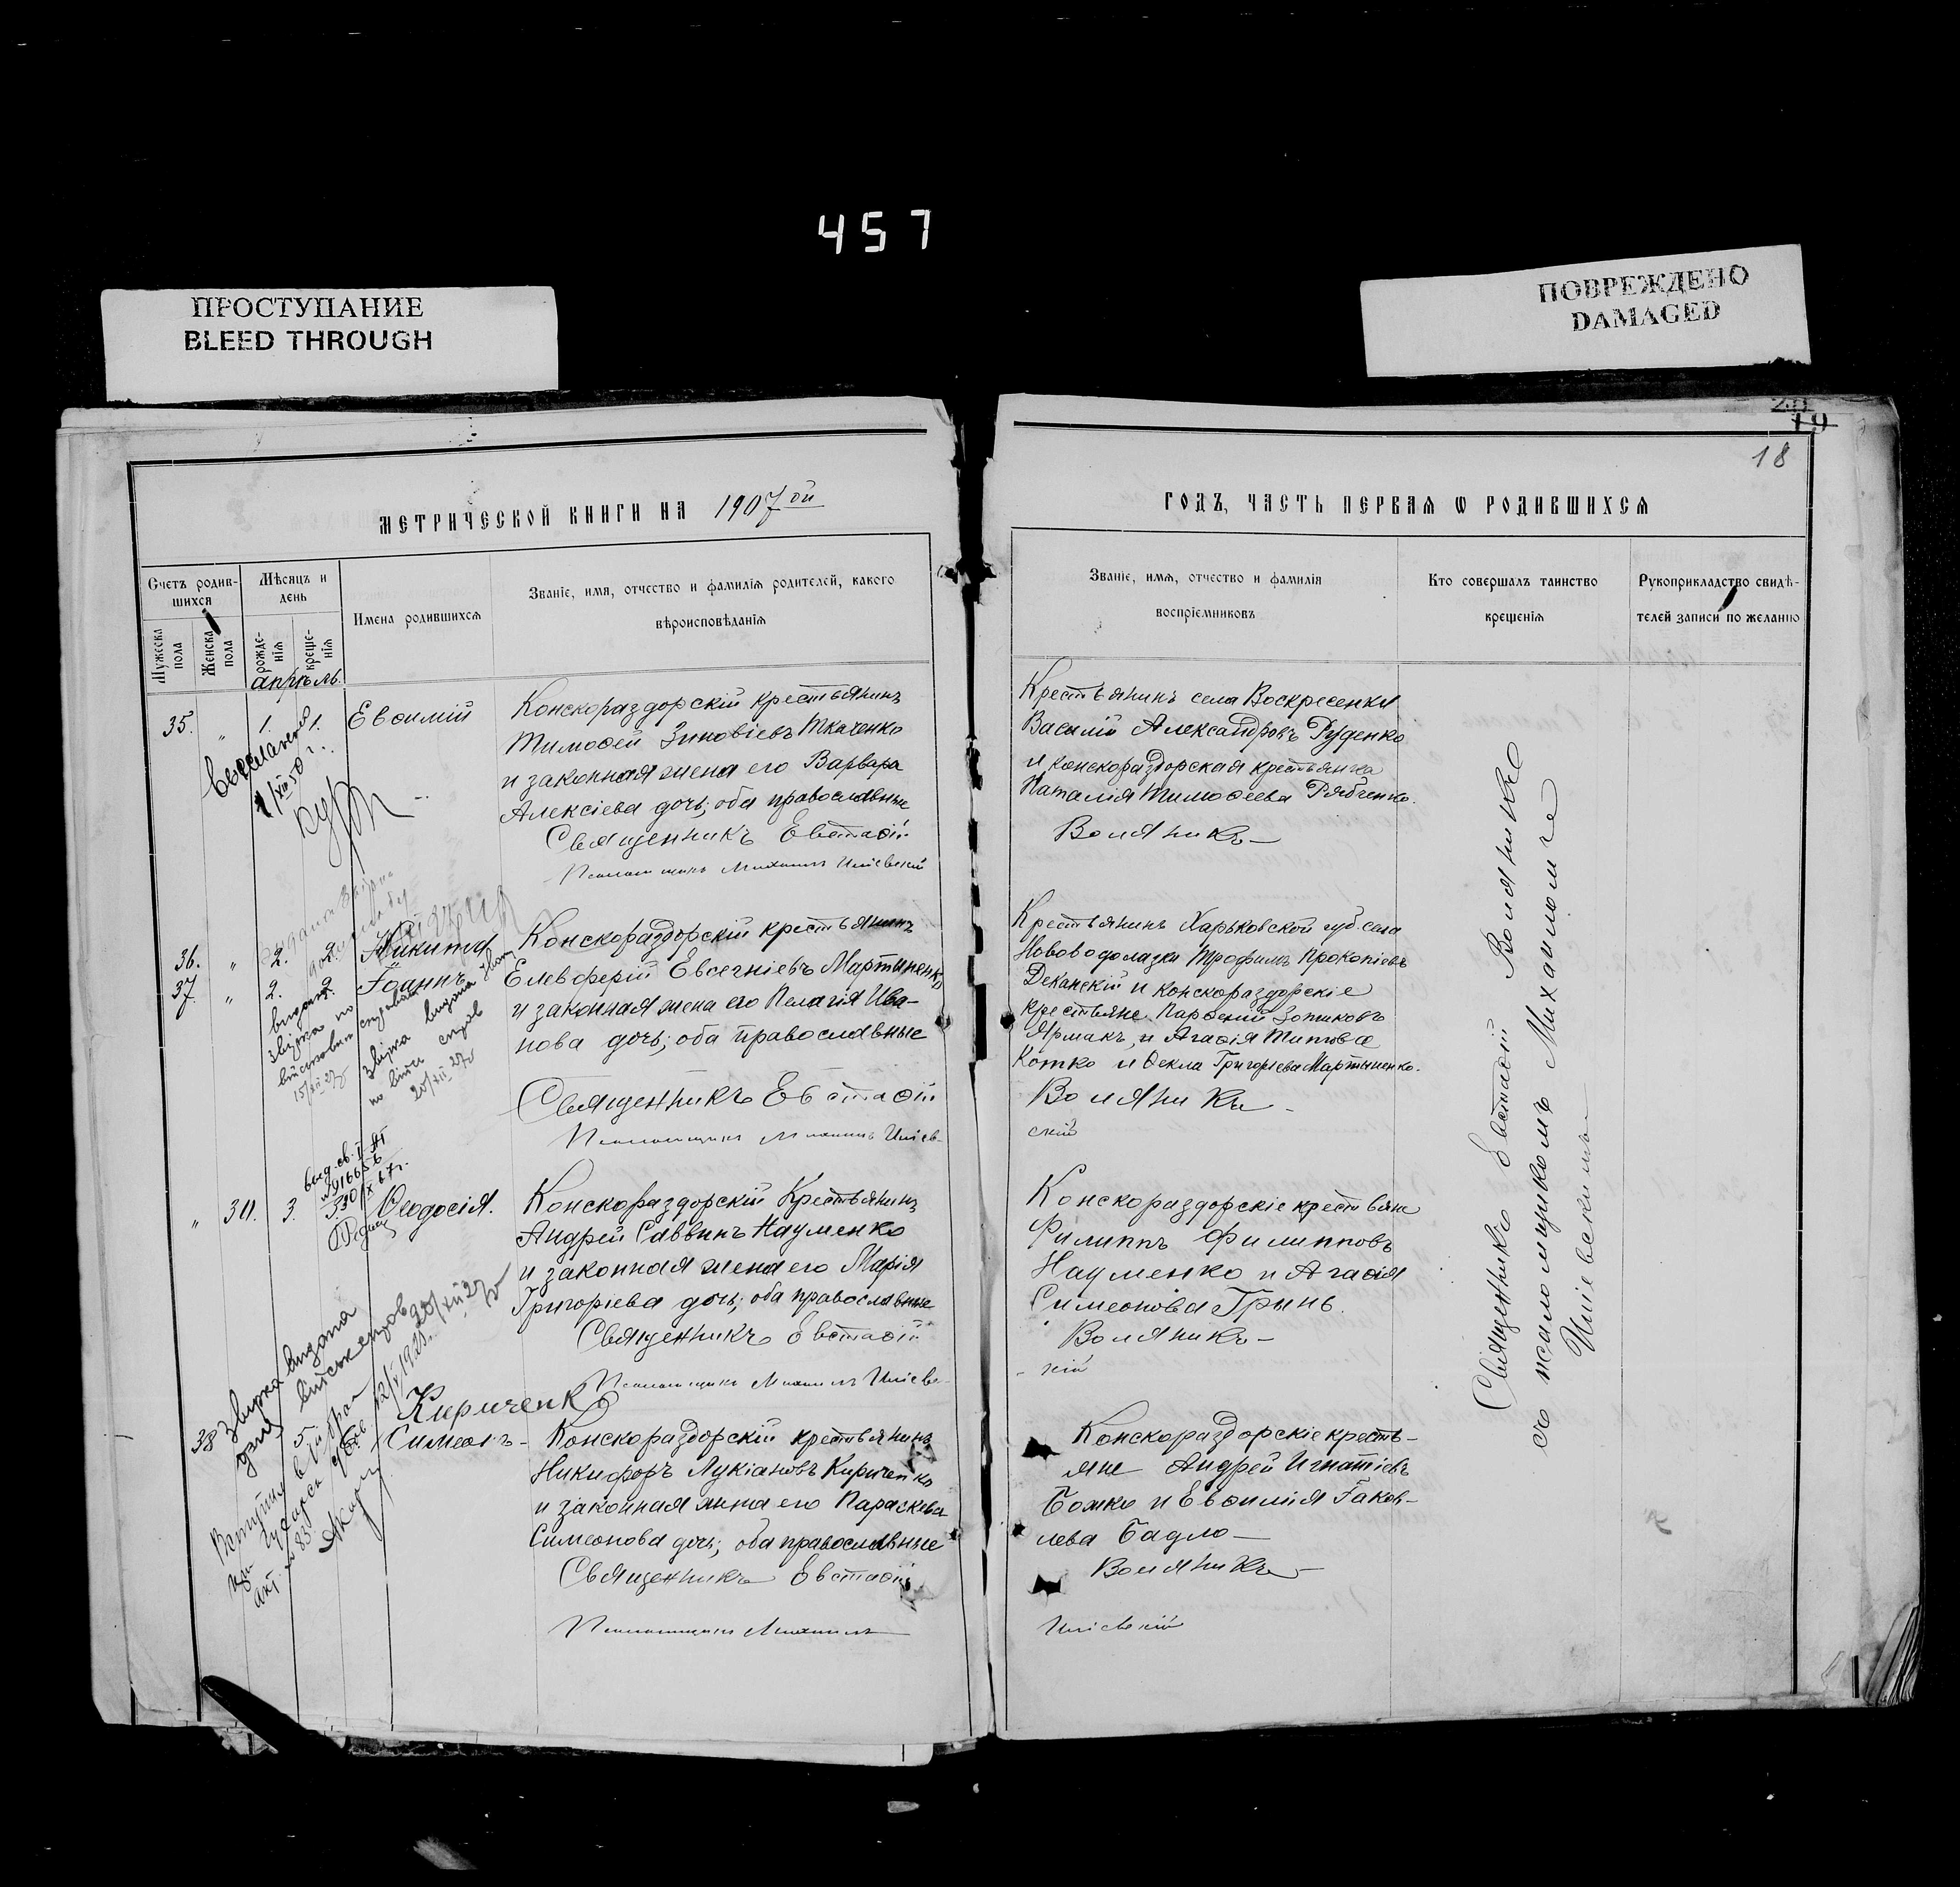 457
ПРОСТУПАНИЕ
BLEED THROUGH
ПОВРЕЖДЕНО
DAMAGED
19
18
МЕТРИЧЕСКОЙ КНИГИ НА 1907ой
ГОДЪ, ЧАСТЬ ПЕРВАЯ Ѡ РОДИВШИХСЯ
Счетъ родив-
шихся
Мужеска пола
Женска пола
Мѣсяцъ и
день
рожде-
нія
креще-
нія
Имена родившихся
Званіе, имя, отчество и фамилія родителей, какого
вѣроисповѣданія
Званіе, имя, отчество и фамилія
воспріемниковъ
Кто совершалъ таинство
крещенія
Рукоприкладство свидѣ-
телей записи по желанію
апрѣль.
35. „ 1. 1. Евѳимій
Конскораздорскій крестьянинъ
Тимоѳей Зиновіевъ Ткаченко
и законная жена его Варвара
Алексіева дочь; оба православные
Священникъ Евстаѳій
Псаломщикъ Михаилъ Иліевскій
Крестьянинъ села Воскресенки
Василій Александровъ Руденко
и конскораздорская крестьянка
Наталія Тимоѳеева Рябченко.
Воляникъ
36. „ 2. 2. Никита
37. „ 2. 2. Іоаннъ
Конскораздорскій крестьянинъ
Елевферій Евгеніевъ Мартыненко
и законная жена его Пелагія Ива-
нова дочь; оба православные
Священникъ Евстаѳій
Псаломщикъ Михаилъ Иліев-
Крестьянинъ Харьковской губ. села
Нововодолазки Трофимъ Прокопіевъ
Деканскій и конскораздорскіе
крестьяне Парѳеній Зотиковъ
Ярмакъ, и Агаѳія Титова
Котко и Ѳекла Григорьева Мартыненко.
Воляникъ
скій
видана
звірка по
15/XII 27
звірка видана
20/XII 27
„ 30. 3. Ѳеодосія.
Конскораздорскій Крестьянинъ
Андрей Саввинъ Науменко
и законная жена его Марія
Григоріева дочь; оба православные
Священникъ Евстаѳій
Псаломщикъ Михаилъ Иліевс-
Конскораздорскіе крестьяне
Филиппъ Филипповъ
Науменко и Агаѳія
Симеонова Гринь.
Воляникъ
кій
звірка видана
20/XII 27
Кириченко
38 5. 6. Симеонъ
Конскораздорскій крестьянинъ
Никифоръ Лукіановъ Кириченко
и законная жена его Параскева
Симеонова дочь; оба православные
Священникъ Евстаѳій
Псаломщикъ Михаилъ
Конскораздорскіе кресть-
яне Андрей Игнатіевъ
Божко и Евѳимія Іаков-
лева Бадло
Воляникъ
Иліевскій
Священникъ Евстаѳій Воляникъ
съ псаломщикомъ Михаиломъ
Иліевскимъ